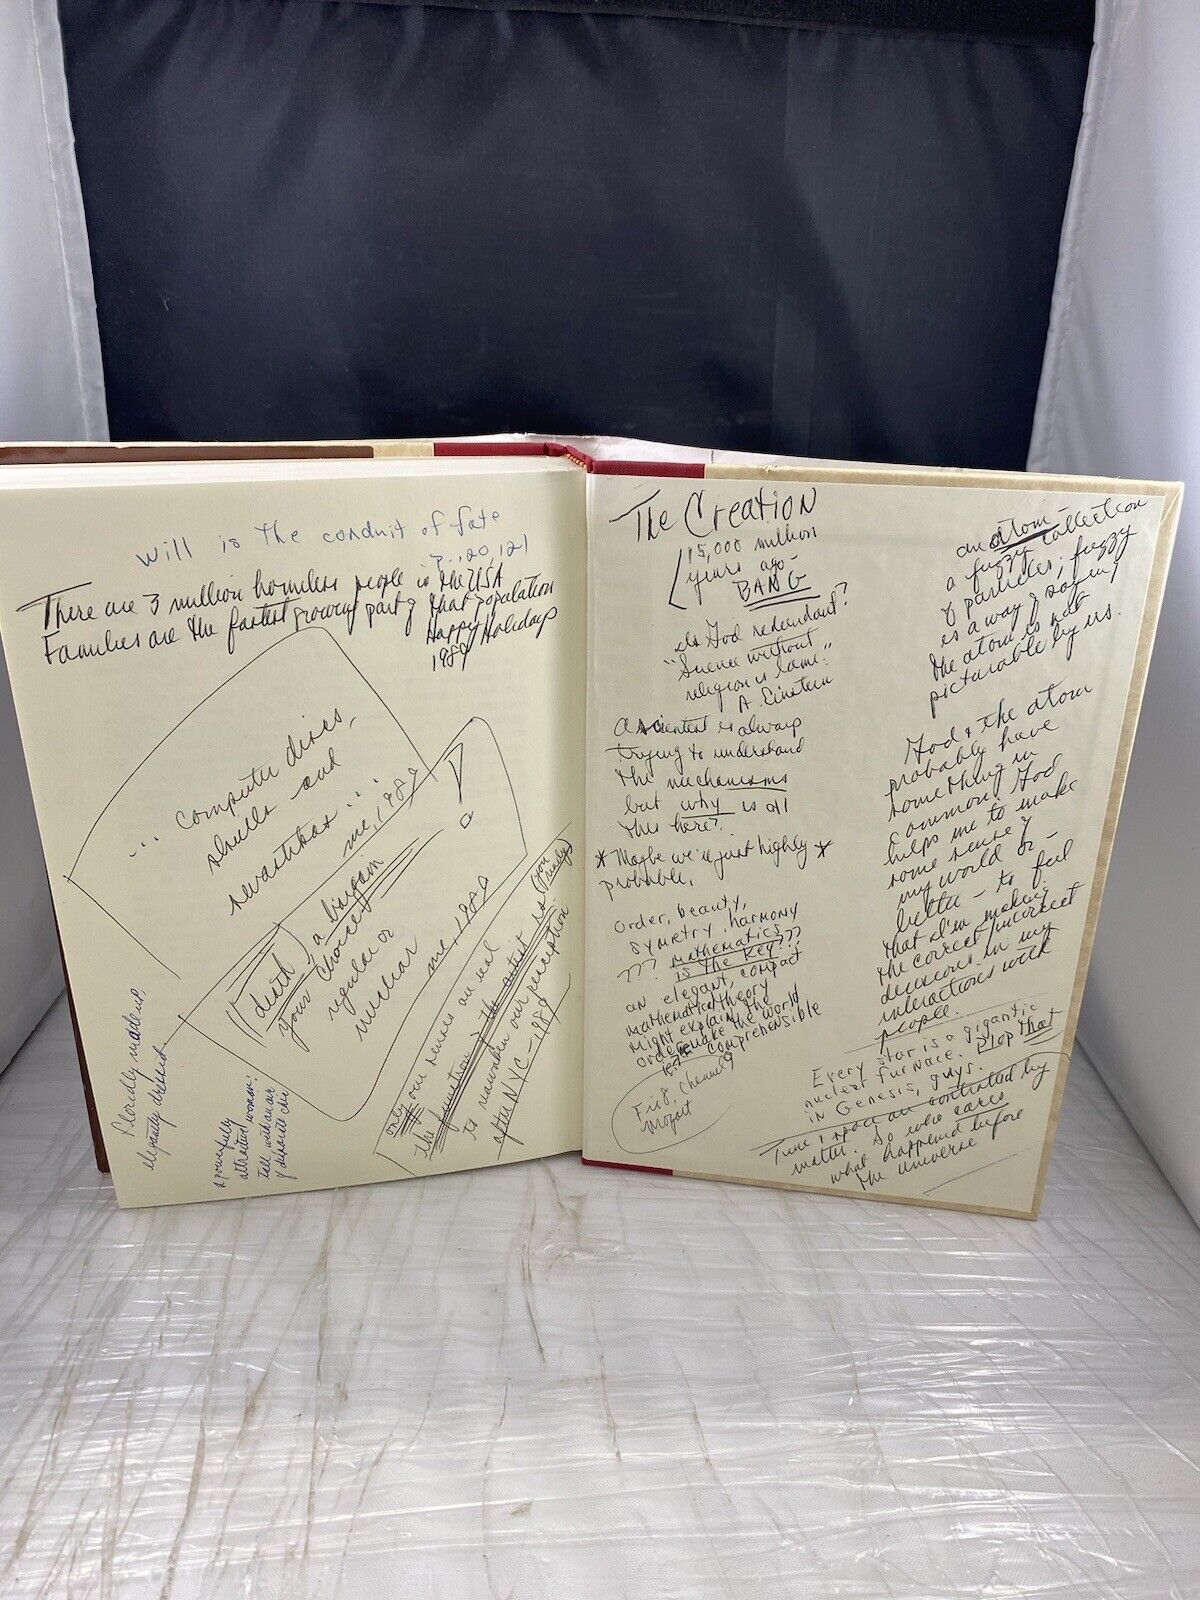 Will is the conduit of fate
p..,20,121
There are 3 million homeless people in the USA
Families are the fastest growing part of that population
Happy Holidays
1989
... computer discs,
skulls and
swastikas"
me, 1989
"death,
a bargain
your choice,
regular or
nuclear
me, 1989
only our
the function of the artist is (you ready)
to reawaken our perception
after NYC - 1989
Floridly made up,
elegantly dressed
a powerfully
attractive woman:
tall with an air
of
The Creation
15,000 million
years ago
BANG
Is God redundant?
"Science without
religion is lame."
A. Einstein
A scientist is always
trying to understand
the mechanisms
but why is all
this here?
* Maybe we're just highly *
probable.
order, beauty,
symetry, harmony
??? mathematics
is the key???
an elegant, compact
mathematical theory
might explain the
order make the world
comprehensible
Fri 8, channel 9
Mozart
an atom -
a fuzzy collection
of particles; fuzzy
is a way of saying
the atom is not
picturable by us.
God & the atom
probably have
something in
common: God
helps me to make
some sense of
my world or -
better - to feel
that I'm making
the correct/incorrect
decisions in my
interactions with
people.
Every star is a gigantic
nuclear furnace. Plop that
in Genesis, guys.
Time & space are controlled by
matter. So who cares
what happened before
the universe